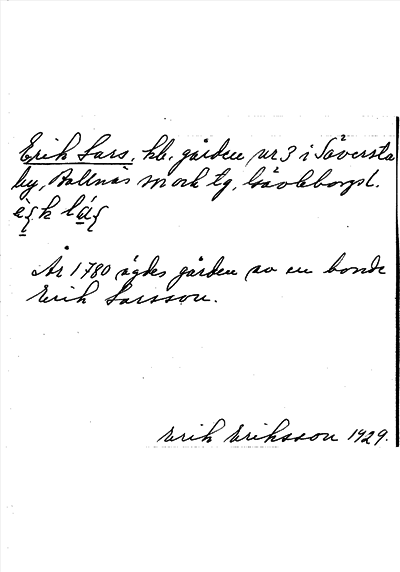 Erik Lars, kb. gården nr 3 i Säversta
by, Bollnäs sn och tg, Gävleborgsl.
År 1780 ägdes gården av en bonde
Erik Larsson.
Erik Eriksson 1929.